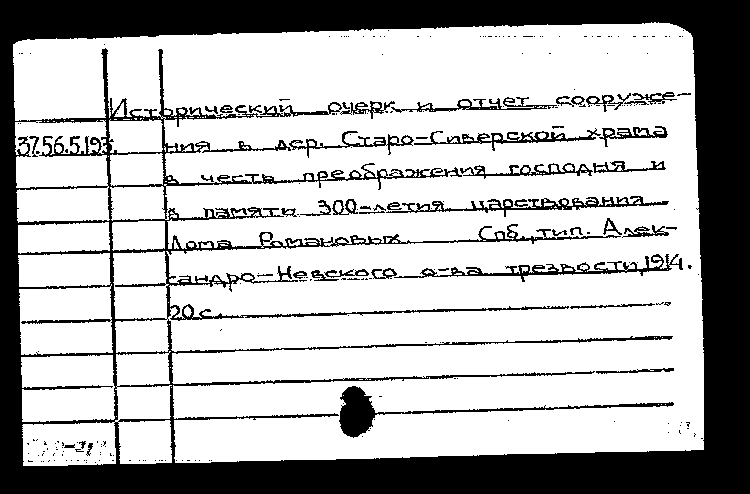 Исторический очерк и отчет сооруже-
37.56.5.193. ния в дер. Старо-Сиверской храма
в честь преображения господня и
в память 300-летия царствования
Дома Романовых. Спб., тип. Алек-
сандро-Невского о-ва трезвости, 1914.
20 с.